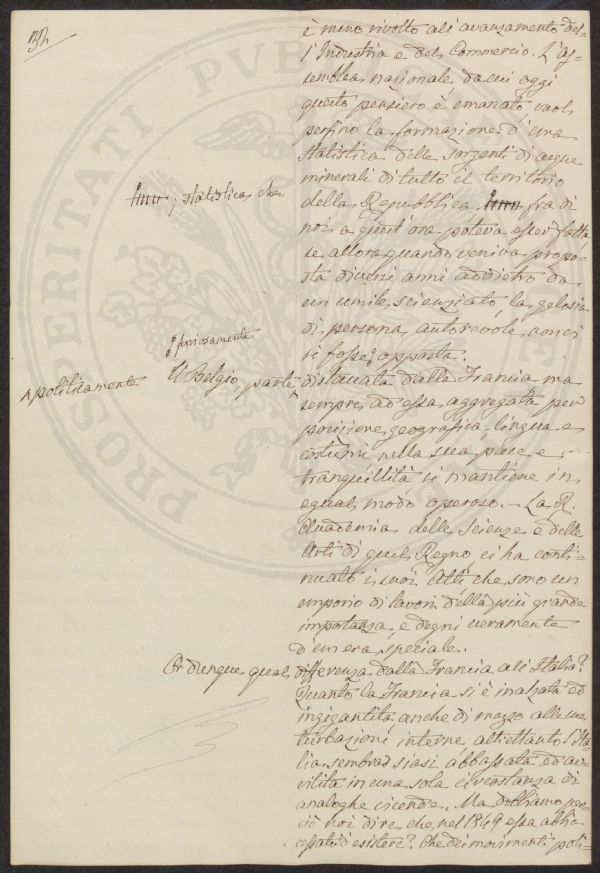 132
è meno rivolto all'avanzamento del=
l'Industria e del Commercio. L'As=
semblea nazionale, da cui oggi
questo pensiero è emanato, vuol
perfino la formazione d'una
statistica delle sorgenti di acque
minerali di tutto il territorio
; statistica che
della Repubblica, fra di
noi a quest'ora poteva esser fatta
se allora quando veniva propo=
sta diversi anni addietro da
un umile scienziato, la gelosia
di persona autorevole non ci
si fosse opposta.
furiosamente
Il Belgio, parte
politicamente
distaccata dalla Francia ma
sempre ad essa aggregata per
posizione geografica, lingua e
costumi nella sua pace e
tranquillità si mantiene in
egual modo operoso. – La R.
Accademia delle Scienze e delle
Arti di quel Regno ci ha conti=
nuato i suoi Atti che sono un
emporio di lavori della più grande
importanza, e degni veramente
d'un'era speciale.
Or dunque qual differenza dalla Francia all'Italia?
Quanto la Francia si è inalzata ed
ingigantita anche di mezzo alle sue
turbazioni interne altrettanto l'Ita=
lia sembra siasi abbassata ed av=
vilita in una sola circostanza di
analoghe vicende. Ma dobbiamo per=
ciò noi dire che nel 1849 essa abbia
cessato d'esistere? Che dei movimenti poli=